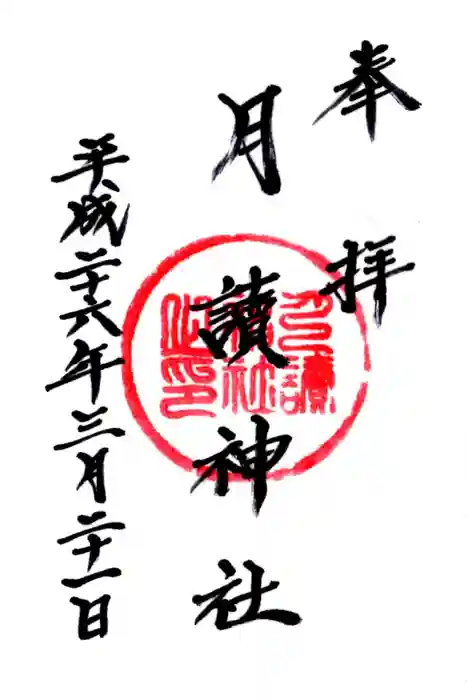 奉拝
月讀神社
平成二十六年三月二十一日
月讀神社之印